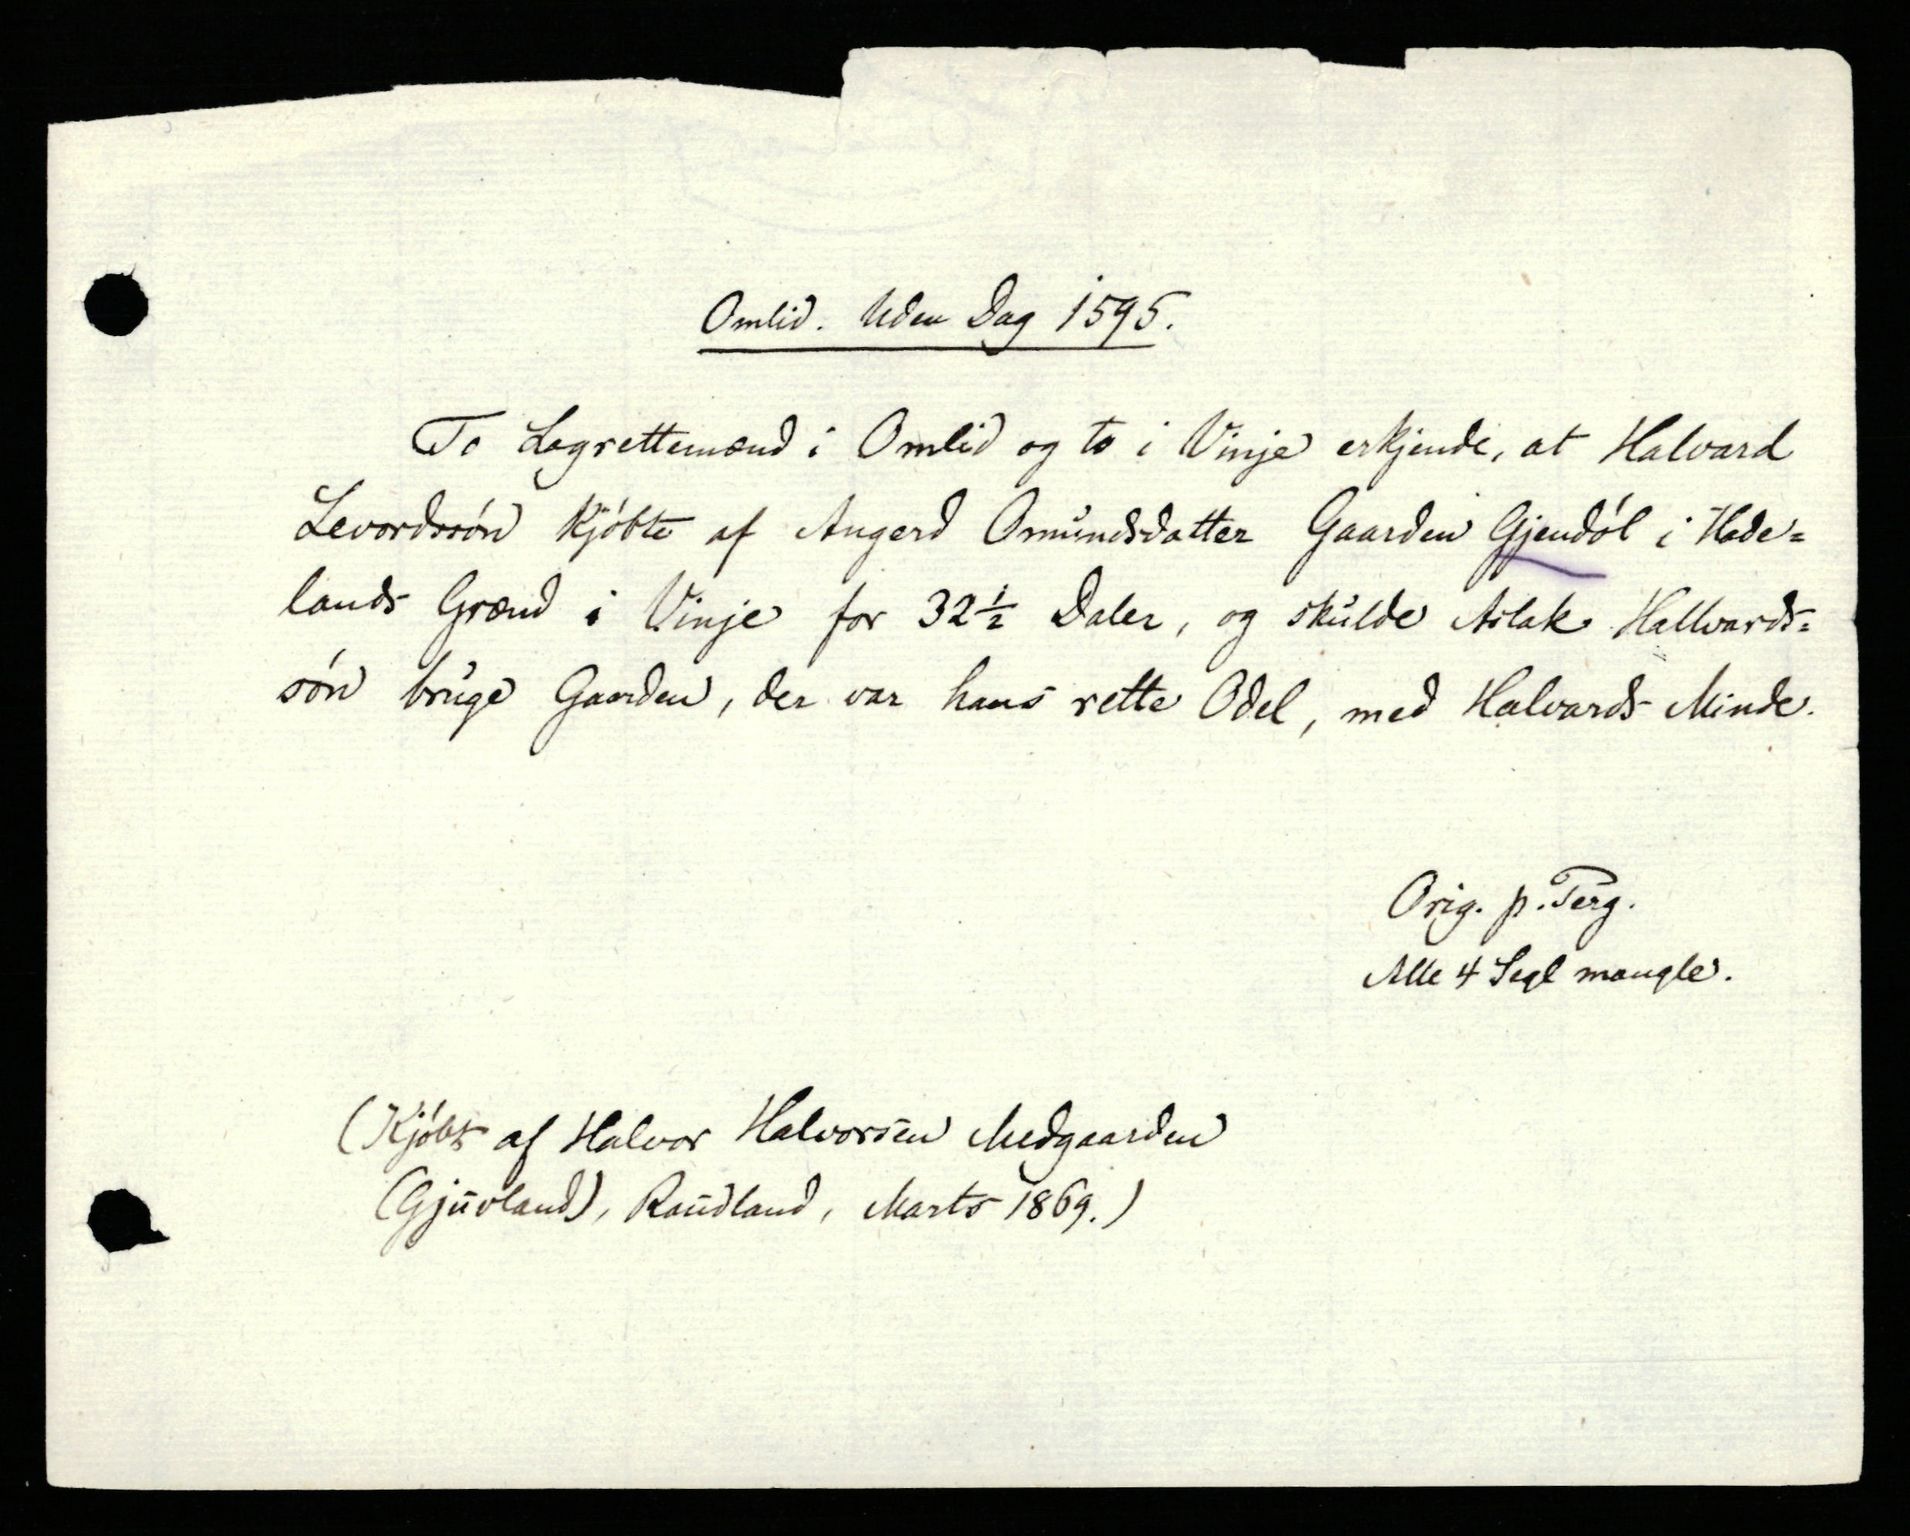 Omlid. Uden Dag 1595.
To Lagrettemænd i Omlid og to i Vinje erkjende, at Halvard
Levordssón kjóbte af Angerd Omundsdatter Gaarden Gjendól i Hade=
lands Grænd i Vinje for 32½ Daler, og skulde Aslak Hallvards=
són bruge Gaarden, der var hans rette Odel, med Halvards Minde.
Orig. p. Perg.
Alle 4 Segl mangle.
(Kjóbt af Halvor Halvorsen Medgaarden
(Gjuvland), Raudland, Marts 1869.)